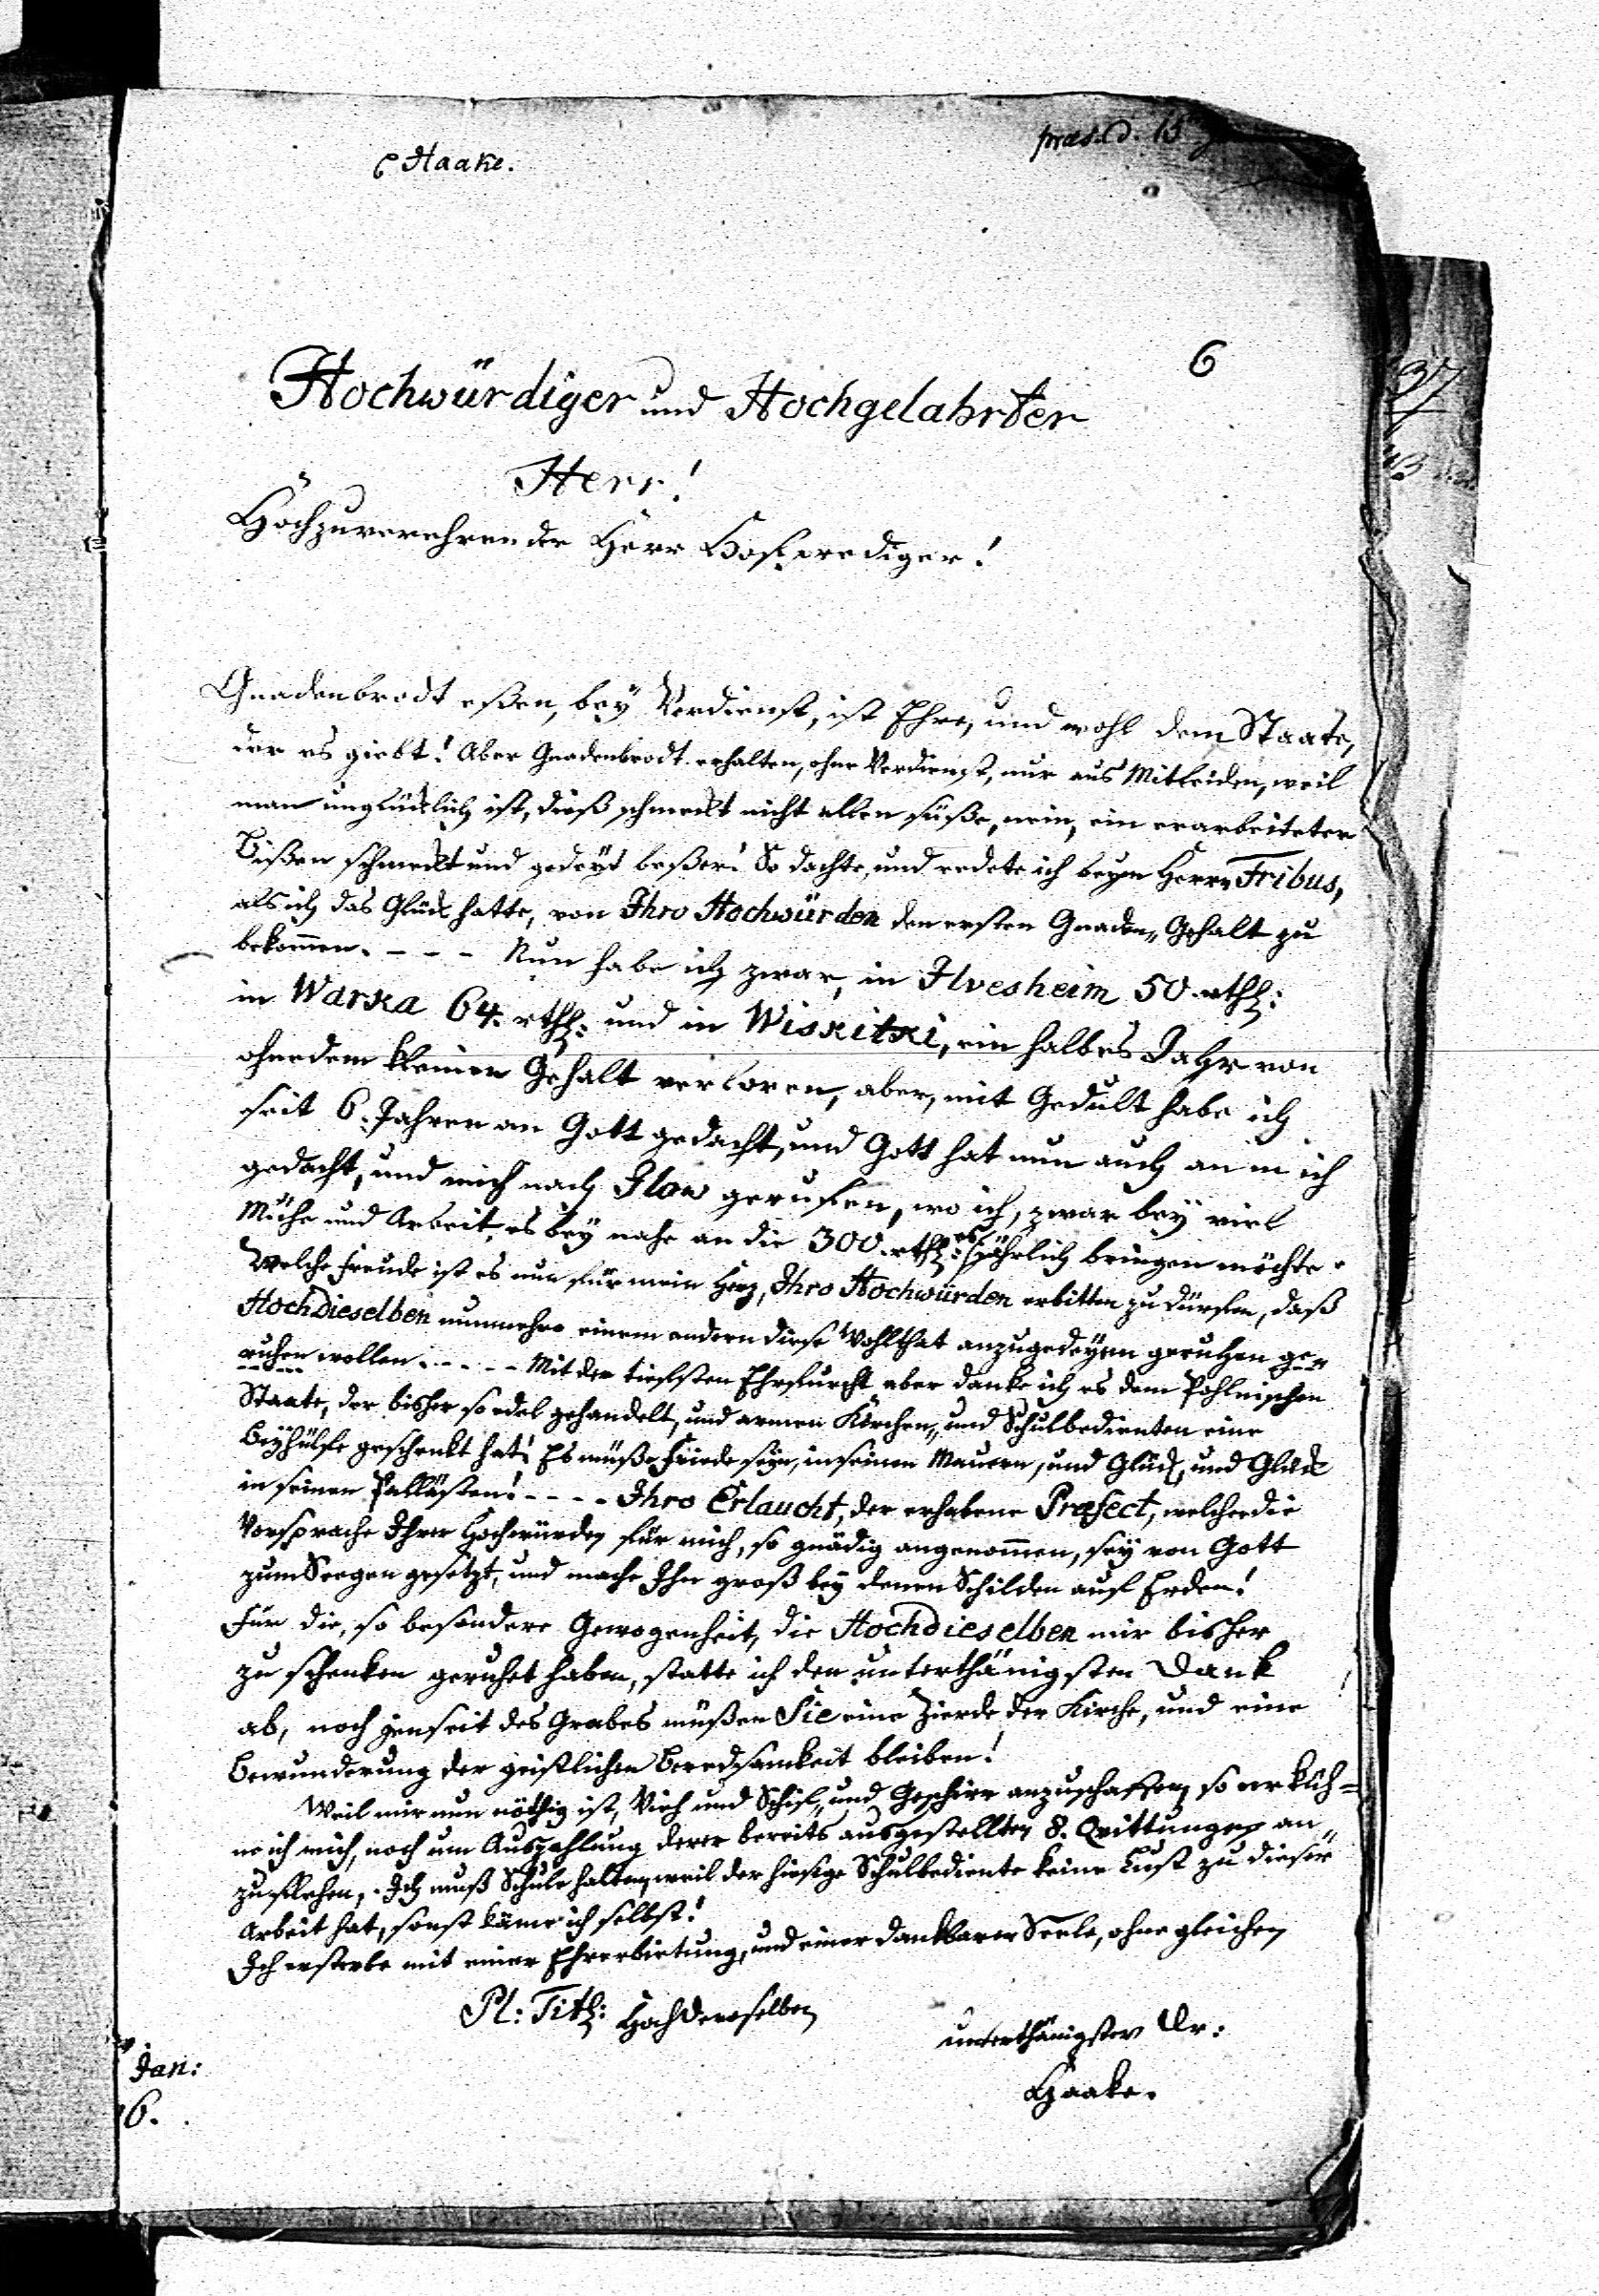 Haake.
præs. d. 15
6
Hochwürdiger und Hochgelahrter
Herr!
Hochzuverehrender Herr Hofprediger!
Gnadenbrodt eßen, bey Verdienst, ist Ehre, und wohl dem Staate,
der es giebt! Aber Gnadenbrodt erhalten, ohne Verdienst, nur aus Mitleiden, weil
man unglücklich ist, dieß schmeckt nicht allen süße, nein, ein erarbeiteter
Bißen schmeckt und gedeyt beßer! So dachte, und redete ich beym Herrn Tribus,
als ich das Glück hatte, von Ihro Hochwürden den ersten Gnaden„ Gehalt zu
bekommen. - - - Nun habe ich zwar, in Ilvesheim 50. rthl:
in Warka 64. rthl: und in Wiskitki, ein halbes Jahr von
ohnedem kleinen Gehalt verloren, aber, mit Gedult habe ich
seit 6. Jahren an Gott gedacht, und Gott hat nun auch an mich
gedacht, und mich nach Ilow gerufen, wo ich, zwar bey viel
Mühe und Arbeit, es bey nahe an die 300. rthl: es jährlich bringen möchte.
Welche Freude ist es nun für mein Herz, Ihro Hochwürden erbitten zu dürfen, daß
Hochdieselben nunmehro einem andern diese Wohlthat anzugedeyen geruhen ge„
ruhen wollen. - - - - - Mit der tiefsten Ehrfurcht aber danke ich es dem Pohlnischen
Staate, der bisher so edel gehandelt, und armen Kirchen„ und Schulbedienten eine
Beyhülfe geschenkt hat! Es müße Friede seyn, in seinen Mauern, und Glück, und Glück
in seinen Pallästen! - - - - Ihro Erlaucht, der erhabene Præfect, welcher die
Vorsprache Ihrer Hochwürden für mich, so gnädig angenommen, sey von Gott
zum Seegen gesetzt, und mache Ihn groß bey denen Schilden auf Erden!
Für die, so besondere Gewogenheit, die Hochdieselben mir bisher
zu schenken geruhet haben, statte ich den unterthänigsten Dank
ab, noch jenseit des Grabes müßen Sie eine Zierde der Kirche, und eine
Bewunderung der geistlichen Beredsamkeit bleiben!
Weil mir nun nöthig ist, Vieh und Schif„ und Geschirr anzuschaffen, so erküh=
ne ich mich, noch um Auszahlung derer bereits ausgestellten 8. Qvittungen an„
zuflehen, Ich muß Schule halten, weil der hiesige Schulbediente keine Lust zu dieser
Arbeit hat, sonst käme ich selbst!
Ich ersterbe mit einer Ehrerbietung, und einer dankbaren Seele, ohne gleichen
Pl: Titl: Hochderoselben
unterthänigster Dr:
Haake.
Jan:
6.
37